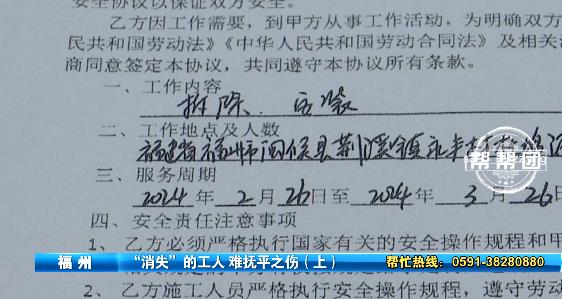 安全协议以保证双方安全。
乙方因工作需要，到甲方从事工作活动，为明确双方
民共和国劳动法》《中华人民共和国劳动合同法》及相关
商同意签定本协议，共同遵守本协议所有条款。
一、工作内容
拆除、安装
二、工作地点及人数
福建省福州市闽侯县荆溪镇永丰
帮帮团
三、服务周期
2024年2月26日至2024年3月26日
四、安全责任注意事项
1、乙方必须严格执行国家有关的安全操作规程和甲
福州 “消失”的工人 难抚平之伤（上） 帮忙热线：0591-38280880
2、乙方施工人员严格执行安全操作规程，遵守劳动